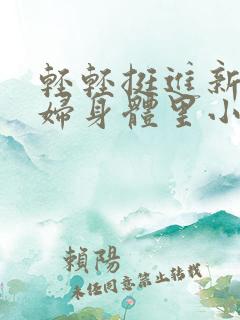 輕輕挺進新
婦身體里小
賴陽
未任同意禁止轉載